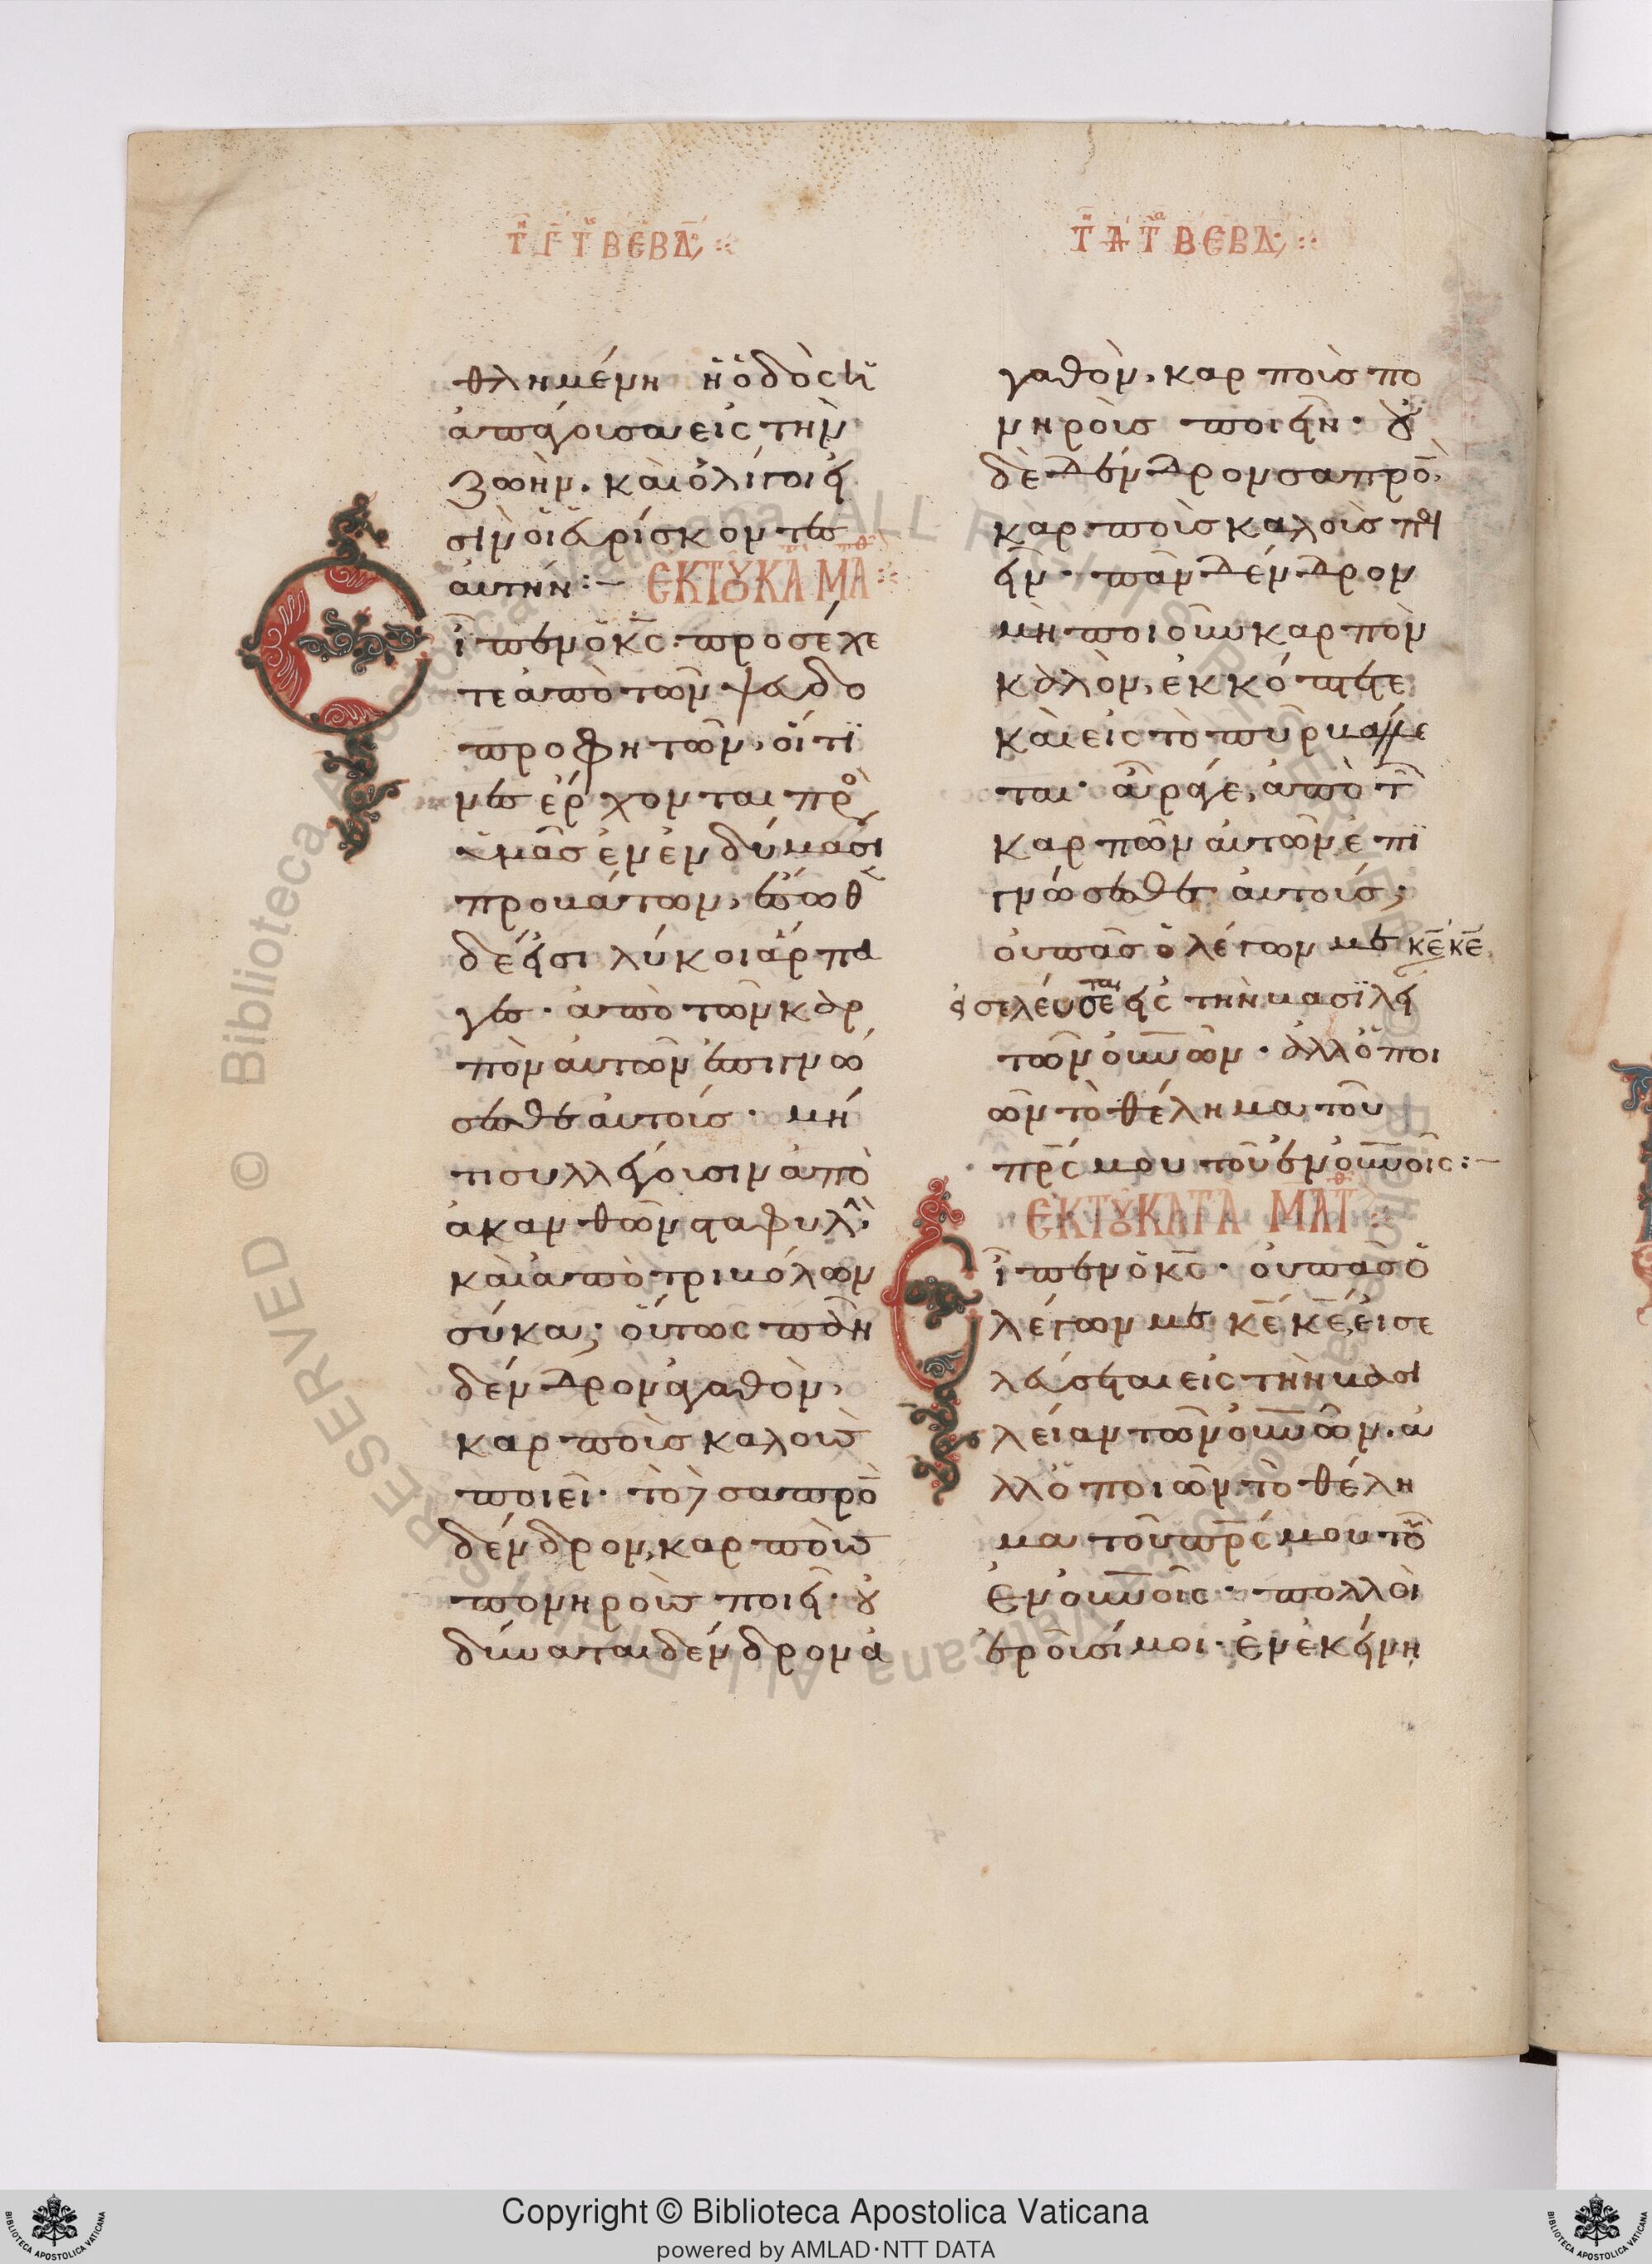 Τῆ Γ Τῆς Β ΕΒΔ
θλημένη ἡ ὁδὸς ἡ
ἀπάγουσα εἰς τὴν
ζωὴν. καὶ ὀλίγοι εἰ
σὶν οἱ εὑρίσκοντες
αὐτήν:– ΕΚ ΤΟΥ ΚΑ ΜΑΘ
Εἶπεν ὁ κς. προσέχε
τε ἀπὸ τῶν ψευδο
προφητῶν, οἵτι
νες ἔρχονται πρὸ
ὑμᾶς ἐν ἐνδύμασι
προβάτων, ἔσωθε
δέ εἰσι λύκοι ἅρπα
γες. ἀπὸ τῶν καρ
πὸν αὐτῶν ἐπιγνώ
σεσθε αὐτούς. μή
τι συλλέγουσιν ἀπὸ
ἀκανθῶν σταφυλὴ
καὶ ἀπὸ τριβόλων
σύκα; οὕτως πᾶν
δένδρον ἀγαθὸν,
καρποὺς καλοὺς
ποιεῖ. τὸ δὲ σαπρὸ
δένδρον, καρποὺς
πονηροὺς ποιεῖ. οὐ
δύναται δένδρον ἀ
Τῆ Δ Τῆς Β ΕΒΔ
γαθὸν, καρποὺς πο
νηροὺς ποιεῖν. οὐ
δὲ δένδρον σαπρὸ,
καρποὺς καλοὺς ποι
εῖν. πᾶν δένδρον
μὴ ποιοῦν καρπὸν
καλὸν, ἐκκόπτεται
καὶ εἰς τὸ πῦρ βάλλε
ται. ἄραγε, ἀπὸ τ
καρπῶν αὐτῶν ἐπι
γνώσεσθε αὐτούς.
οὐ πᾶς ὁ λέγων μοι κε κε
εἰσελεύσεται εἰς τὴν βασιλεί
τῶν οὐνῶν. ἀλλ ὁ ποι
ῶν τὸ θέλημα τοῦ
πρς μου τοῦ ἐν οὐνοῖς:–
ΕΚ ΤΟΥ ΚΑΤΑ ΜΑΤΘ
Εἶπεν ὁ κς. οὐ πᾶς ὁ
λέγων μοι κε κε, εἰσε
λεύσεται εἰς τὴν βασι
λείαν τῶν οὐνῶν. ἀ
λλ ὁ ποιῶν τὸ θέλη
μα τοῦ πρς μου τοῦ
ἐν οὐνοῖς. πολλοὶ
ἐροῦσί μοι. ἐν ἐκείνη
Copyright © Biblioteca Apostolica Vaticana
powered by AMLAD·NTT DATA